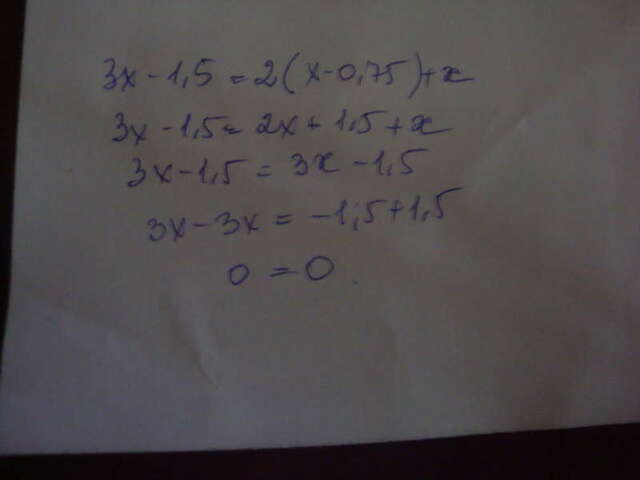 3x - 1,5 = 2(x - 0,75) + x
3x - 1,5 = 2x + 1,5 + x
3x - 1,5 = 3x - 1,5
3x - 3x = -1,5 + 1,5
0 = 0.